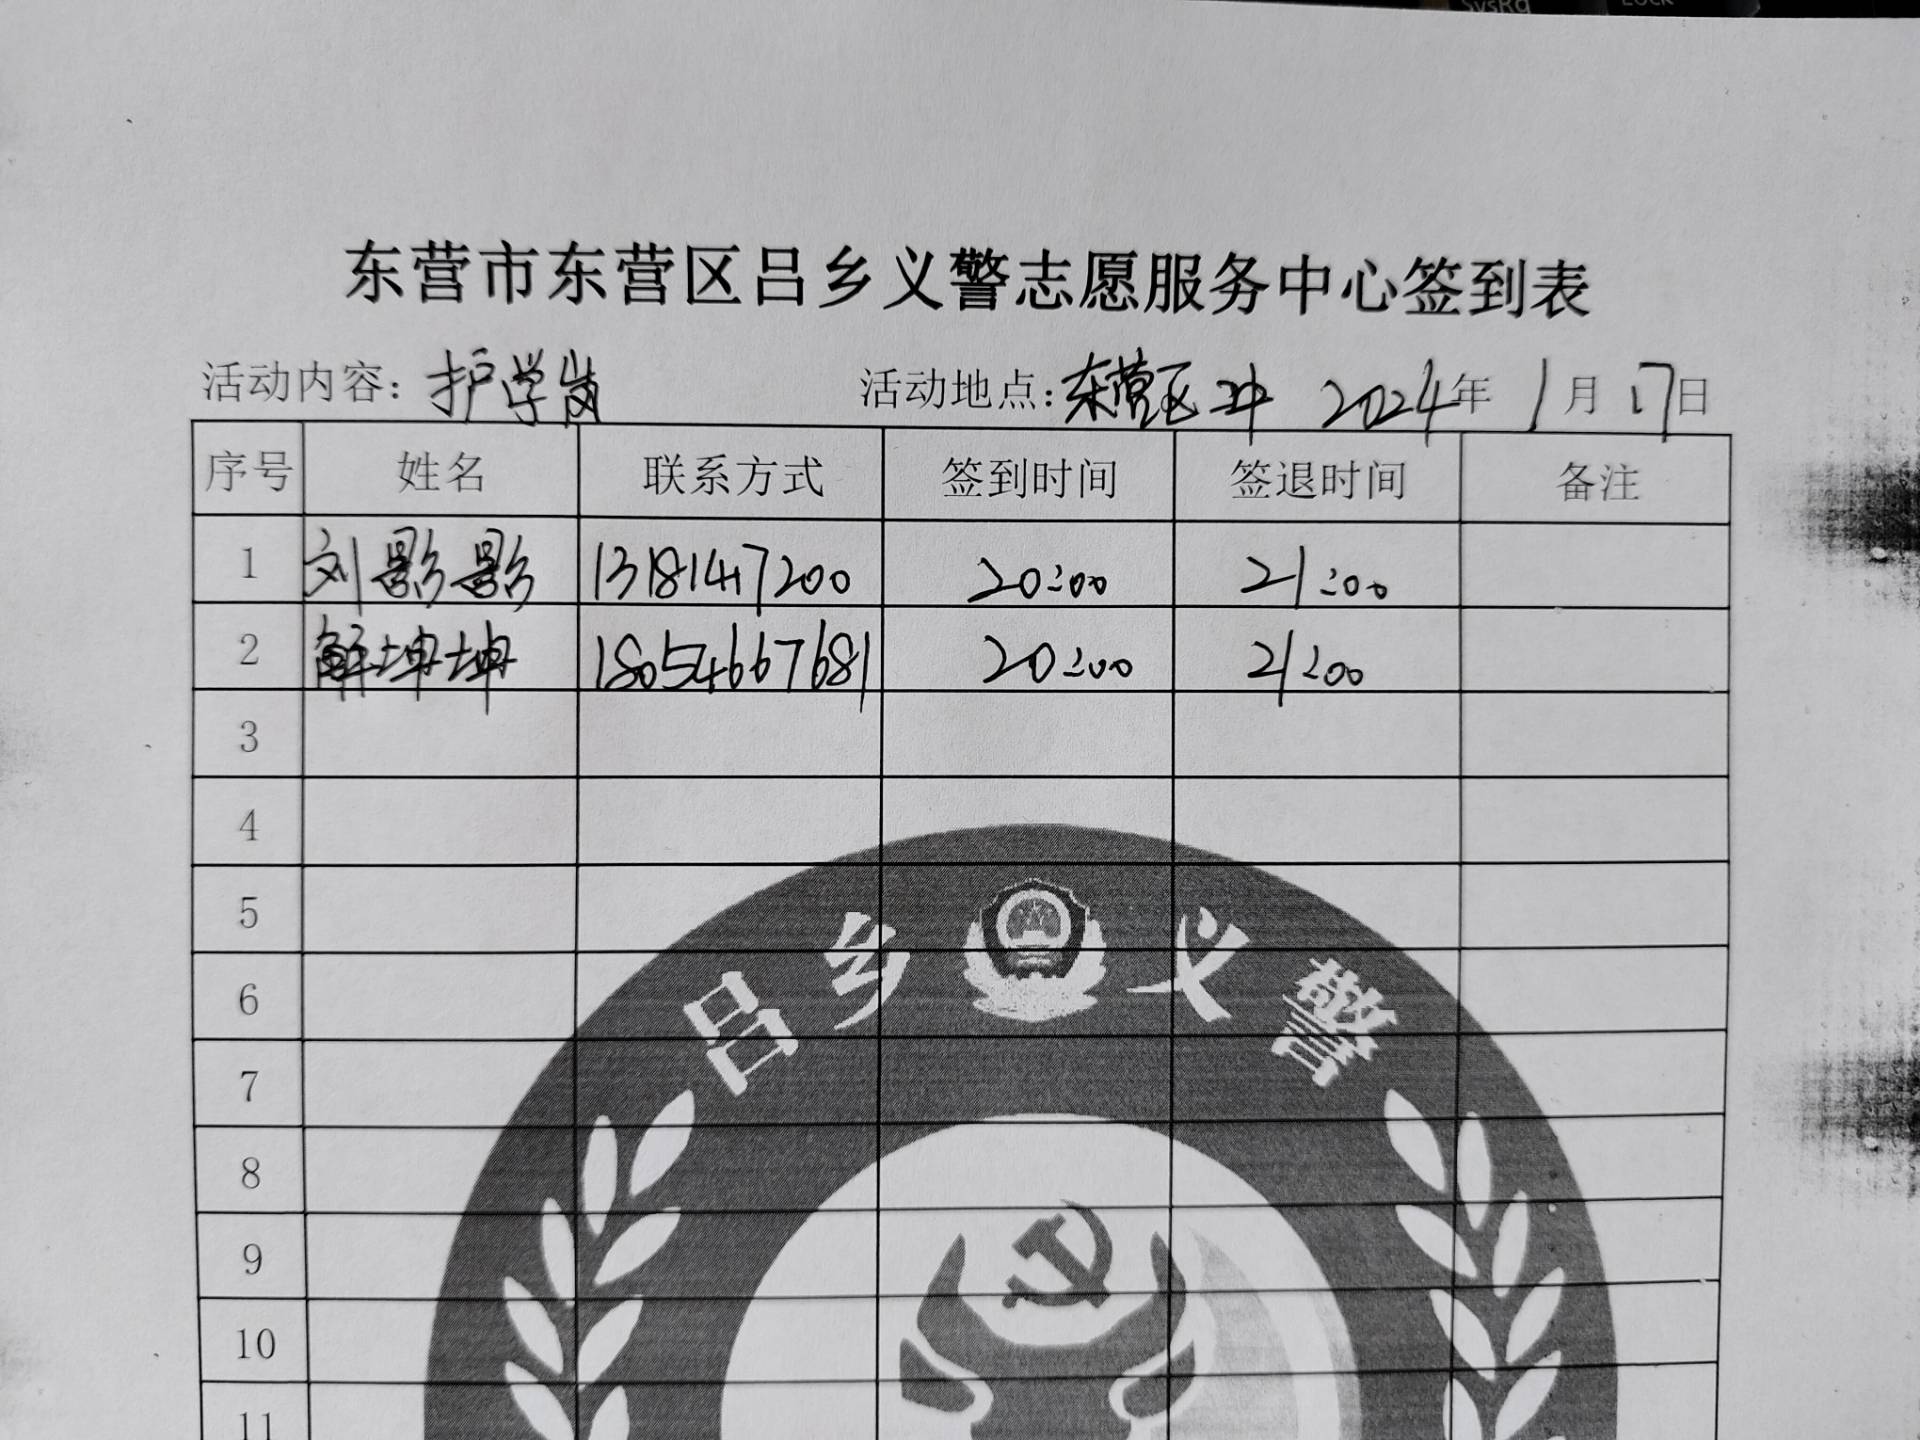 SysRq
Lock
东营市东营区吕乡义警志愿服务中心签到表
活动内容：护学岗 活动地点：东营区二中 2024年 1月 17日
序号 姓名 联系方式 签到时间 签退时间 备注
1 刘影影 13181417200 20:00 21:00
2 解坤坤 18054667681 20:00 21:00
3
4
5
6
7
8
9
10
11
吕乡义警